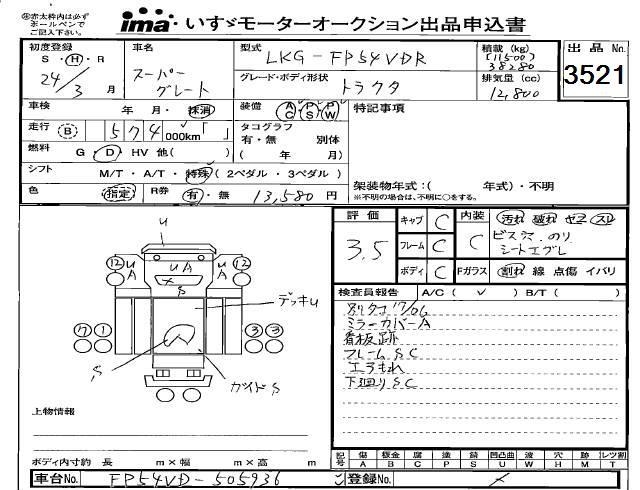 ㊟赤太枠内は必ず
ボールペンで
ご記入下さい。
ima いすゞモーターオークション出品申込書
初度登録 車名 型式 LKG-FP54VDR 積載(kg) 出品No.
S・H・R スーパー (11500)
38280
24/3 月 グレート グレード・ボディ形状 トラクタ 排気量(cc) 12,800 3521
車検 年・月・抹消 装備 AC PS PW 特記事項
走行 B 574,000km「 」 タコグラフ
有・無 別体
燃料 G・D・HV 他( ) ( 年 月)
シフト M/T・A/T・特殊(2ペダル・3ペダル)
架装物年式:( 年式)・不明
色 指定 R券 有・無 13,580円 ※不明の場合は、不明に○をする。
評価 3.5 キャブ C 内装 C 汚れ 破れ ヤブ スレ
フレーム C ビス穴、のり
シートエグレ
ボディ C Fガラス 割れ 線 点傷 イバリ
検査員報告 A/C( ✓ ) B/T( )
別タコ 17/06
ミラーカバーA
看板跡
フレームSC
エアもれ
下廻りSC
u
12 uA uA 12 uA
× S
デッキu
7 1 3 3
S カツイドS
上物情報
ボディ内寸約 長 m×幅 m×高 m
記号 傷 A 板金 B 腐 C 塗 P 錆 S 凹凸曲 U 波 W 穴 H 跡 M 土 T レツ割 R
車台No. FP54VD-505936 登録No. ×